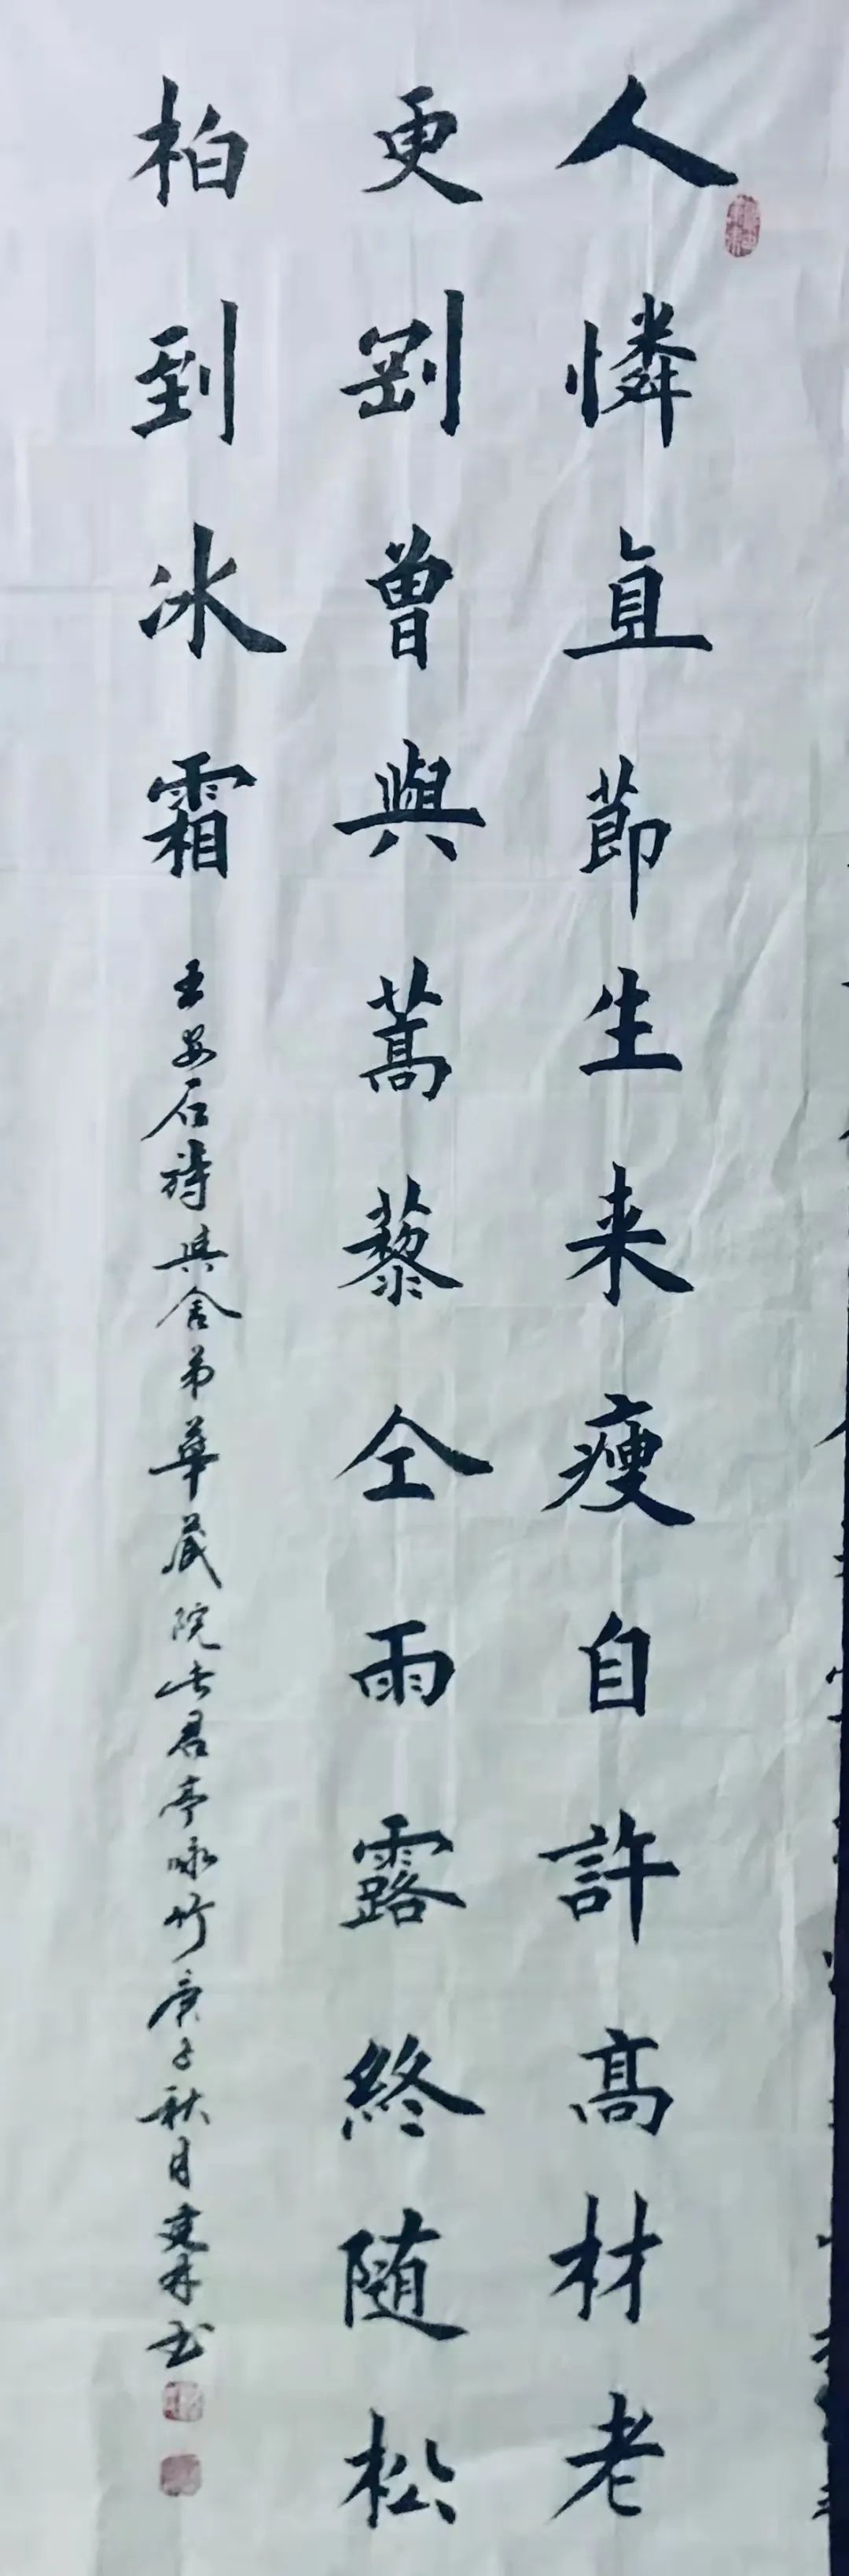 人憐直節生来瘦自許高材老
更剛曾與蒿藜仝雨露終随松
柏到冰霜
王安石詩與舍弟華藏院此君亭咏竹庚子秋月建林书